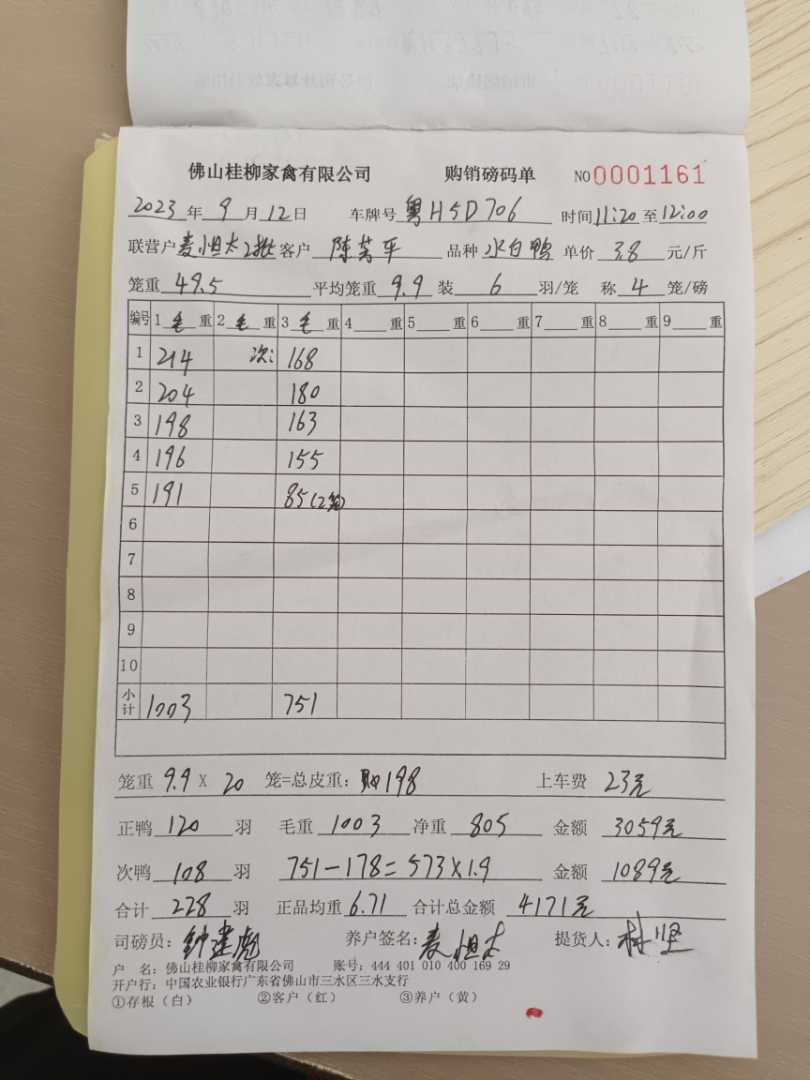 佛山桂柳家禽有限公司 购销磅码单 NO 0001161
2023年9月12日 车牌号 粤H5D706 时间11:20至12:00
联营户麦恒太2批 客户 陈芳平 品种 水白鸭 单价 3.8 元/斤
笼重 49.5 平均笼重 9.9 装 6 羽/笼 称 4 笼/磅
编号 1 毛 重 2 毛 重 3 毛 重 4 重 5 重 6 重 7 重 8 重 9 重
1 214 次: 168
2 204 180
3 198 163
4 196 155
5 191 85(2笼)
6
7
8
9
10
小计 1003 751
笼重 9.9 X 20 笼=总皮重: 198 上车费 23元
正鸭 120 羽 毛重 1003 净重 805 金额 3059元
次鸭 108 羽 751-178=573X1.9 金额 1089元
合计 228 羽 正品均重 6.71 合计总金额 4171元
司磅员: 钟建彪 养户签名: 麦恒太 提货人: 林坚
户 名: 佛山桂柳家禽有限公司 账号: 444 401 010 400 169 29
开户行: 中国农业银行广东省佛山市三水区三水支行
①存根(白) ②客户(红) ③养户(黄)